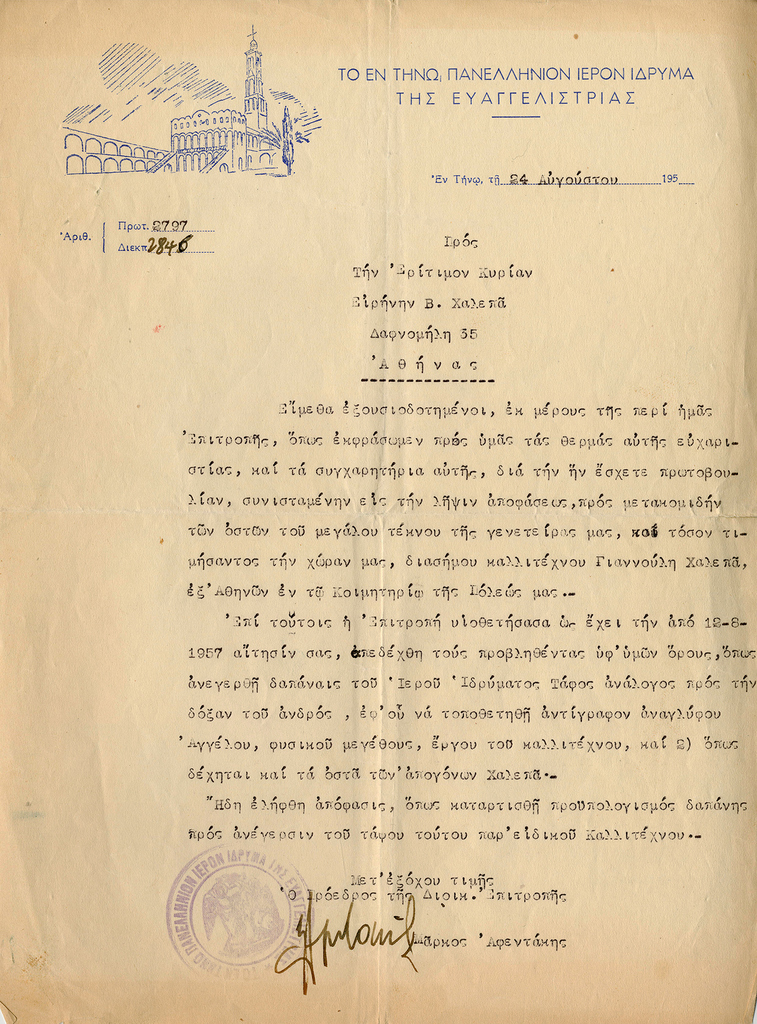 ΤΟ ΕΝ ΤΗΝΩ, ΠΑΝΕΛΛΗΝΙΟΝ ΙΕΡΟΝ ΙΔΡΥΜΑ
ΤΗΣ ΕΥΑΓΓΕΛΙΣΤΡΙΑΣ
Ἐν Τήνῳ, τῇ 24 Αὐγούστου 195
Ἀριθ. Πρωτ. 2797
Διεκπ. 2846
Πρός
Τήν Ἐρίτιμον Κυρίαν
Εἰρήνην Β. Χαλεπᾶ
Δαφνομήλη 35
Ἀθήνας
Εἴμεθα ἐξουσιοδοτημένοι, ἐκ μέρους τῆς περί ἡμᾶς
Ἐπιτροπῆς, ὅπως ἐκφράσωμεν πρός ὑμᾶς τάς θερμάς αὐτῆς εὐχαρι-
στίας, καί τά συγχαρητήρια αὐτῆς, διά τήν ἥν ἔσχετε πρωτοβου-
λίαν, συνισταμένην εἰς τήν λῆψιν ἀποφάσεως, πρός μετακομιδήν
τῶν ὀστῶν τοῦ μεγάλου τέκνου τῆς γενετείρας μας, καί τόσον τι-
μήσαντος τήν χώραν μας, διασήμου καλλιτέχνου Γιαννούλη Χαλεπᾶ,
ἐξ' Ἀθηνῶν ἐν τῷ Κοιμητηρίῳ τῆς Πόλεώς μας.-
Ἐπί τούτοις ἡ Ἐπιτροπή υἱοθετήσασα ὡς ἔχει τήν ἀπό 12-8-
1957 αἴτησίν σας, ἀπεδέχθη τούς προβληθέντας ὑφ' ὑμῶν ὅρους, ὅπως
ἀνεγερθῇ δαπάναις τοῦ Ἱεροῦ Ἱδρύματος Τάφος ἀνάλογος πρός τήν
δόξαν τοῦ ἀνδρός, ἐφ' οὗ νά τοποθετηθῇ ἀντίγραφον ἀναγλύφου
Ἀγγέλου, φυσικοῦ μεγέθους, ἔργου τοῦ καλλιτέχνου, καί 2) ὅπως
δέχηται καί τά ὀστᾶ τῶν ἀπογόνων Χαλεπᾶ.-
Ἤδη ἐλήφθη ἀπόφασις, ὅπως καταρτισθῇ προϋπολογισμός δαπάνης
πρός ἀνέγερσιν τοῦ τάφου τούτου παρ' εἰδικοῦ Καλλιτέχνου.-
Μετ' ἐξόχου τιμῆς
Ὁ Πρόεδρος τῆς Διοικ. Ἐπιτροπῆς
Μάρκος Ἀφεντάκης